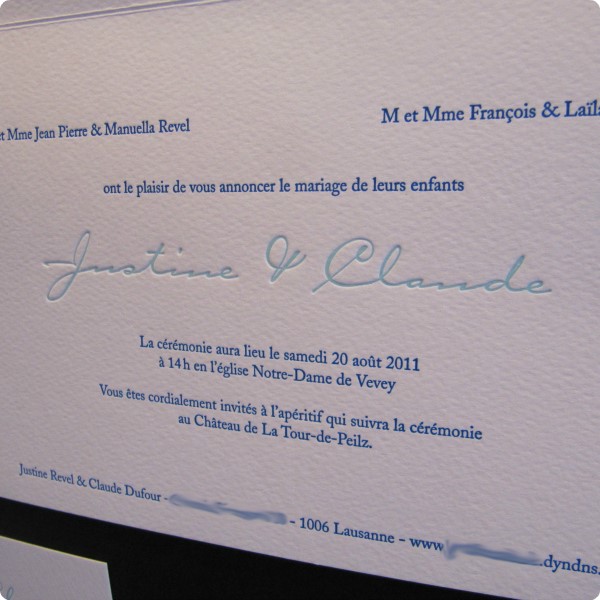 et Mme Jean Pierre & Manuella Revel
M et Mme François & Laïla
ont le plaisir de vous annoncer le mariage de leurs enfants
Justine & Claude
La cérémonie aura lieu le samedi 20 août 2011
à 14h en l'église Notre-Dame de Vevey
Vous êtes cordialement invités à l'apéritif qui suivra la cérémonie
au Château de La Tour-de-Peilz.
Justine Revel & Claude Dufour - - 1006 Lausanne - www .dyndns.